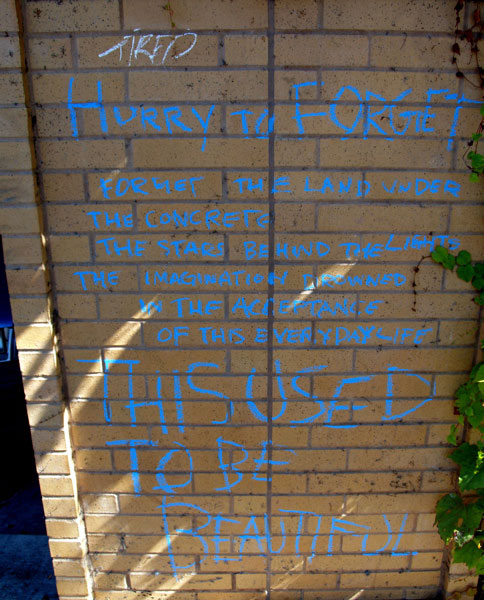 TIRED
HURRY TO FORGET
FORGET THE LAND UNDER
THE CONCRETE
THE STARS BEHIND THE LIGHTS
THE IMAGINATION DROWNED
IN THE ACCEPTANCE
OF THIS EVERYDAY LIFE
THIS USED
TO BE
BEAUTIFUL